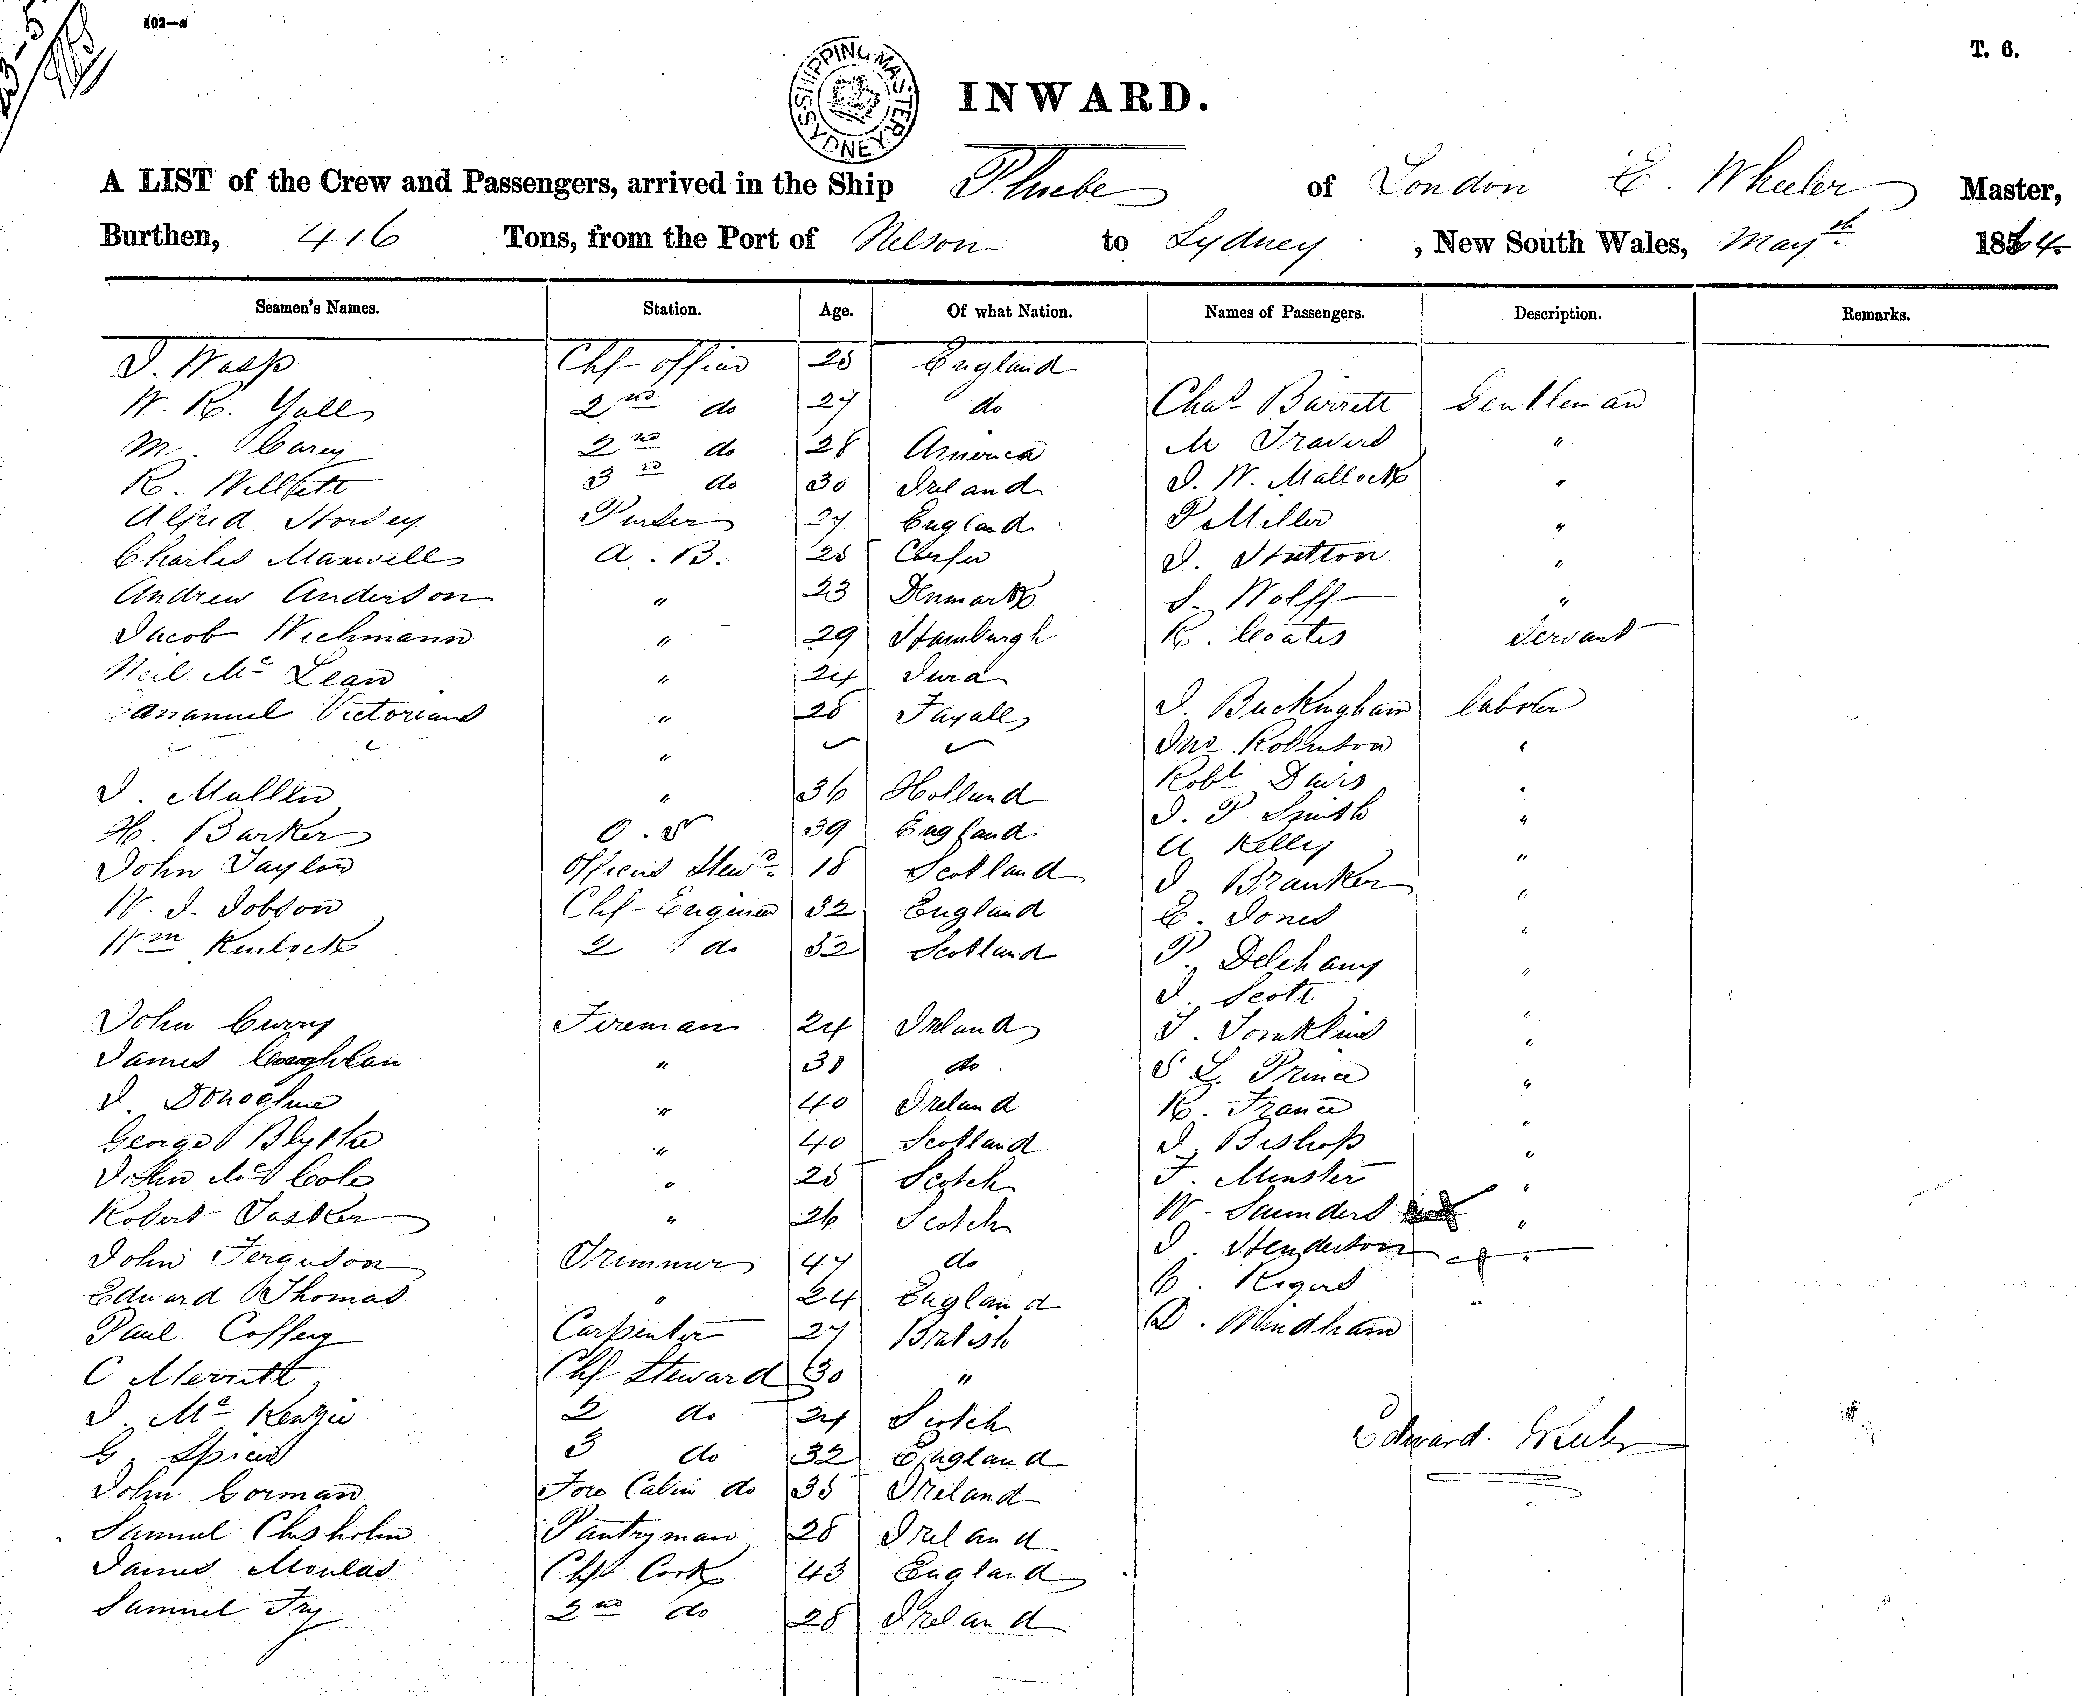 102—a
T. 6.
SHIPPING MASTER SYDNEY
INWARD.
A LIST of the Crew and Passengers, arrived in the Ship Phoebe of London E. Wheeler Master,
Burthen, 416 Tons, from the Port of Nelson to Sydney, New South Wales, May 1864
Seamen's Names. Station. Age. Of what Nation. Names of Passengers. Description. Remarks.
J. Wasp Chf officer 28 England
W. R. Yall 2nd do 27 do Chas Barrett Gentleman
M. Carey 2nd do 28 America M Travers "
R. Willett 3rd do 30 Ireland J. W. Mallock "
Alfred Horsey Purser 27 England P Miller "
Charles Maxwell A. B. 28 Corfu J. Hutton "
Andrew Anderson " 23 Denmark S. Wolff "
Jacob Wichmann " 29 Hamburgh R. Coates Servant
Neil Mc Lean " 24 Jura
Victoriano " 28 Fayall J. Buckingham laborer
" Jno Robertson "
J. Mullen " 36 Holland Robt Davis "
H. Barker O. S 39 England J. P. Smith "
John Taylor Officers Stewd 18 Scotland A Kelly "
W. J. Jobson Chf Engineer 32 England J Branker "
Wm Kinlock 2 do 32 Scotland E. Jones "
P. Delehany "
J. Scott
John Curry Fireman 24 Ireland T. Tomkins "
James Coughlan " 30 do S L. Prince "
J. Donoghue " 40 Ireland R. France "
George Blythe " 40 Scotland J. Bishop "
John Mc Cole " 28 Scotch F. Munster "
Robert Tasker " 26 Scotch W. Saunders "
John Ferguson Trimmer 47 do J. Henderson "
Edward Thomas " 24 England C. Rogers "
Paul Coffey Carpenter 27 British D. Windham
C Merritt Chf Steward 30 "
J. Mc Kenzie 2 do 24 Scotch
G. Spicer 3 do 32 England
Edward Wheeler
John Gorman Fore Cabin do 35 Ireland
Samuel Chisholm Pantryman 28 Ireland
James Moulas Chf Cook 43 England
Samuel Fry 2nd do 28 Ireland